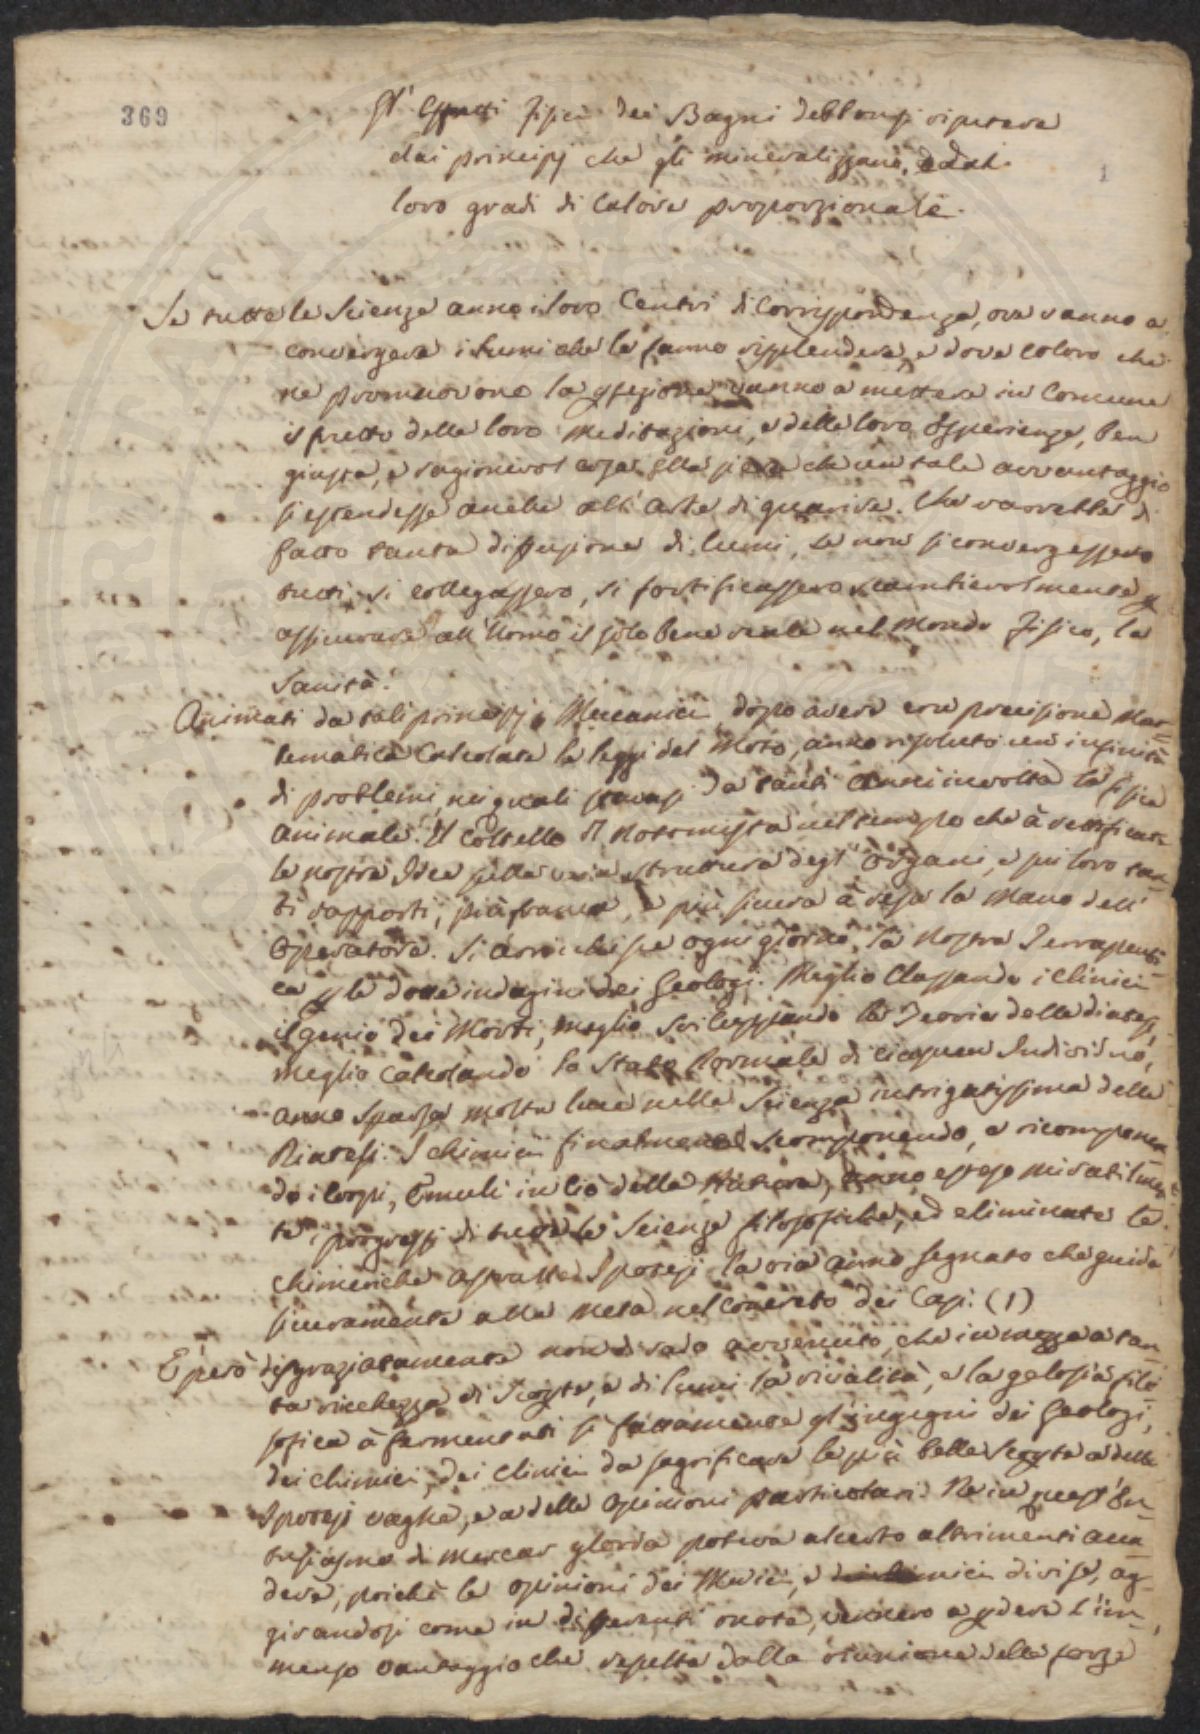 369
Gl' Effetti Fisici dei Bagni debbonsi ripetere
dai principj che gli mineralizzano, e dal
1
loro gradi di Calore proporzionale.
Se tutte le Scienze anno i loro Centri di Corrispondenza, ove vanno a
convergere i lumi che le fanno risplendere, e dove coloro che
ne promuovono la vanno a mettere in Comune
il frutto delle loro Meditazioni, e delle loro Esperienze, ben
giusta, e ragionevol cosa ella si era che un tale avvantaggio
si estendesse anche all'Arte di guarire. Che varrebbe di
fatto tanta diffusione di lumi, se non si convergessero
tutti, si collegassero, si fortificassero scambievolmente p
assicurare all'Uomo il solo bene reale nel Mondo Fisico, la
Sanità.
Animati da tali principj i Meccanici, dopo avere con precisione Mat=
tematica Calcolate le leggi del Moto, anno risoluto un infinità
di problemi nei quali stavasi da tanti Anni involta la fisica
animale. Il Coltello del Notomista nel tempo che à rettificate
le nostre Idee sulla vera struttura degl' Organi, e sui loro tan-
ti rapporti, più franca, e più sicura à resa la Mano dell'
Operatore. Si arricchisce ogni giorno la Nostra Terrapeuti-
ca p le dotte indagini dei Geologi. Meglio Classando i Clinici
il genio dei Morbi, meglio sviluppando la Teoria delle diatesi,
meglio Calcolando lo Stato Normale di ciascun Individuo,
anno Sparsa molta luce nella Scienza intrigatissima delle
Diatesi. I chimici finalmente scomponendo, e ricomponen
do i Corpi, Emuli in ciò della Natura, anno esteso mirabilmen
te i progressi di tutte le Scienze filosofiche, ed eliminate le
chimeriche astratte Ipotesi la via anno segnato che guida
sicuramente alla Meta nel concreto dei Casi. (1)
E però disgraziatamente non di rado avvenuto, che in mezzo a tan-
ta ricchezza di Scoperte, e di lumi la rivalità, e la gelosia filo
sofica à fermentati sì fattamente gl'ingegni dei Geologi,
dei chimici, dei Clinici da sagrificare le più belle Scoperte a delle
Ipotesi vaghe, e a delle Opinioni particolari. Ne in quest'En-
tusiasmo di mercar gloria poteva al certo altrimenti acca
dere, poichè le opinioni dei Medici, e divise, ag-
girandosi come in differenti ruote, vennero a perdere l'im-
menso vantaggio che risulta dalla riunione delle forze